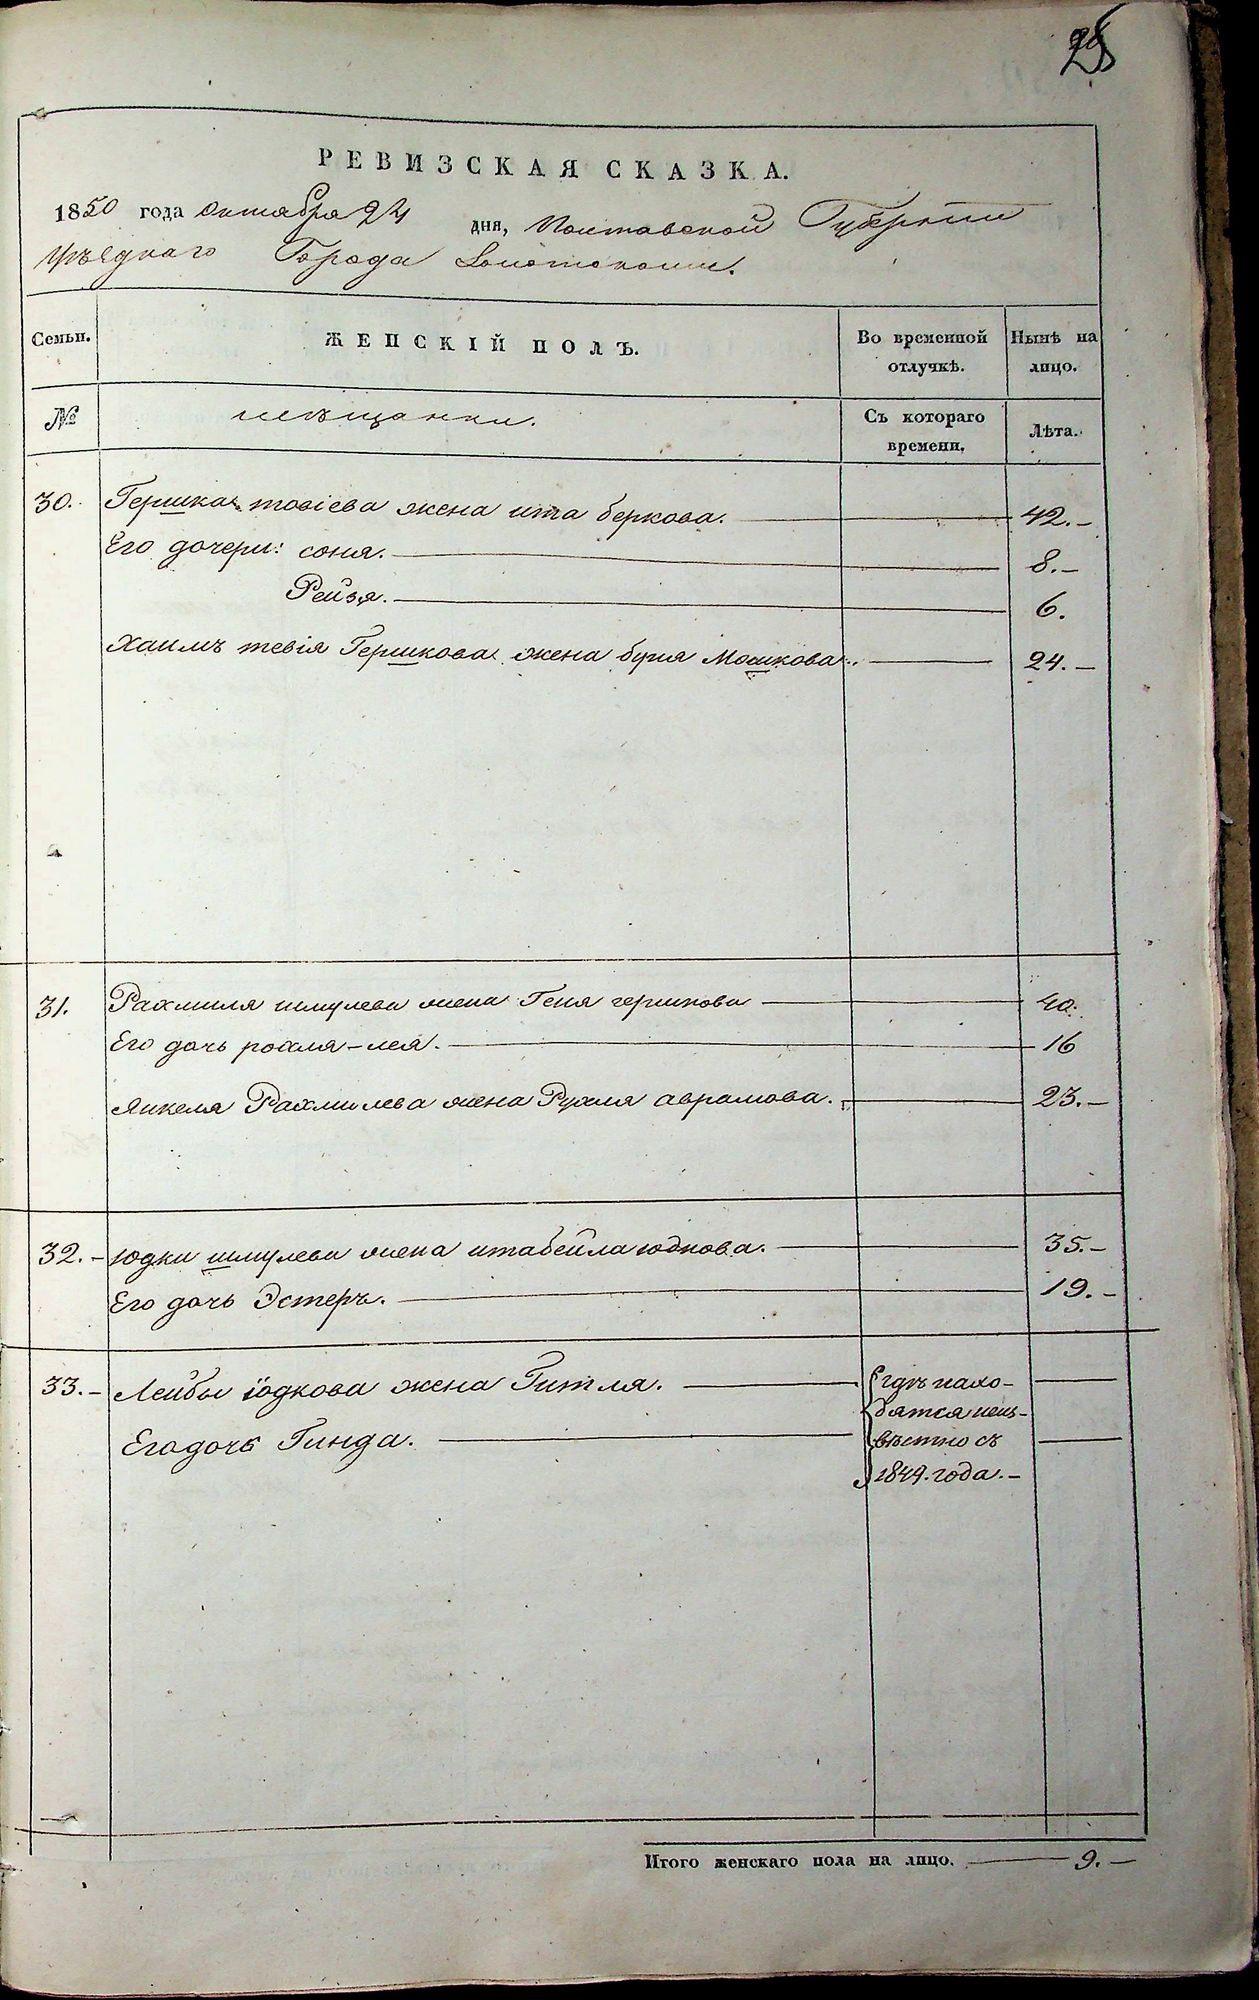 РЕВИЗСКАЯ СКАЗКА.
1850 года Октября 24 дня, Полтавской Губернии
Уѣзднаго Города Золотоноши.
Семьи. ЖЕНСКІЙ ПОЛЪ. Во временной отлучкѣ. Нынѣ на лицо.
№ мѣщанки. Съ котораго времени. Лѣта.
30. Гершка товіева жена ита беркова. 42.
Его дочери: соня. 8.
Рейзя. 6.
Хаимъ тевія Гершкова жена буня Мошкова. 24.
31. Рахмиля шмулева жена Геня гершкова 40.
Его дочь рохля-лея. 16
Янкеля Рахмилева жена Рухля аврамова. 23.
32. Юдки шмулева жена итабейла юдкова. 35.
Его дочь Эстеръ. 19.
33. Лейбы іюдкова жена Гитля. гдѣ нахо-
дятся неиз-
Его дочь Гинда. вѣстно съ
1849. года.
Итого женскаго пола на лицо. 9.